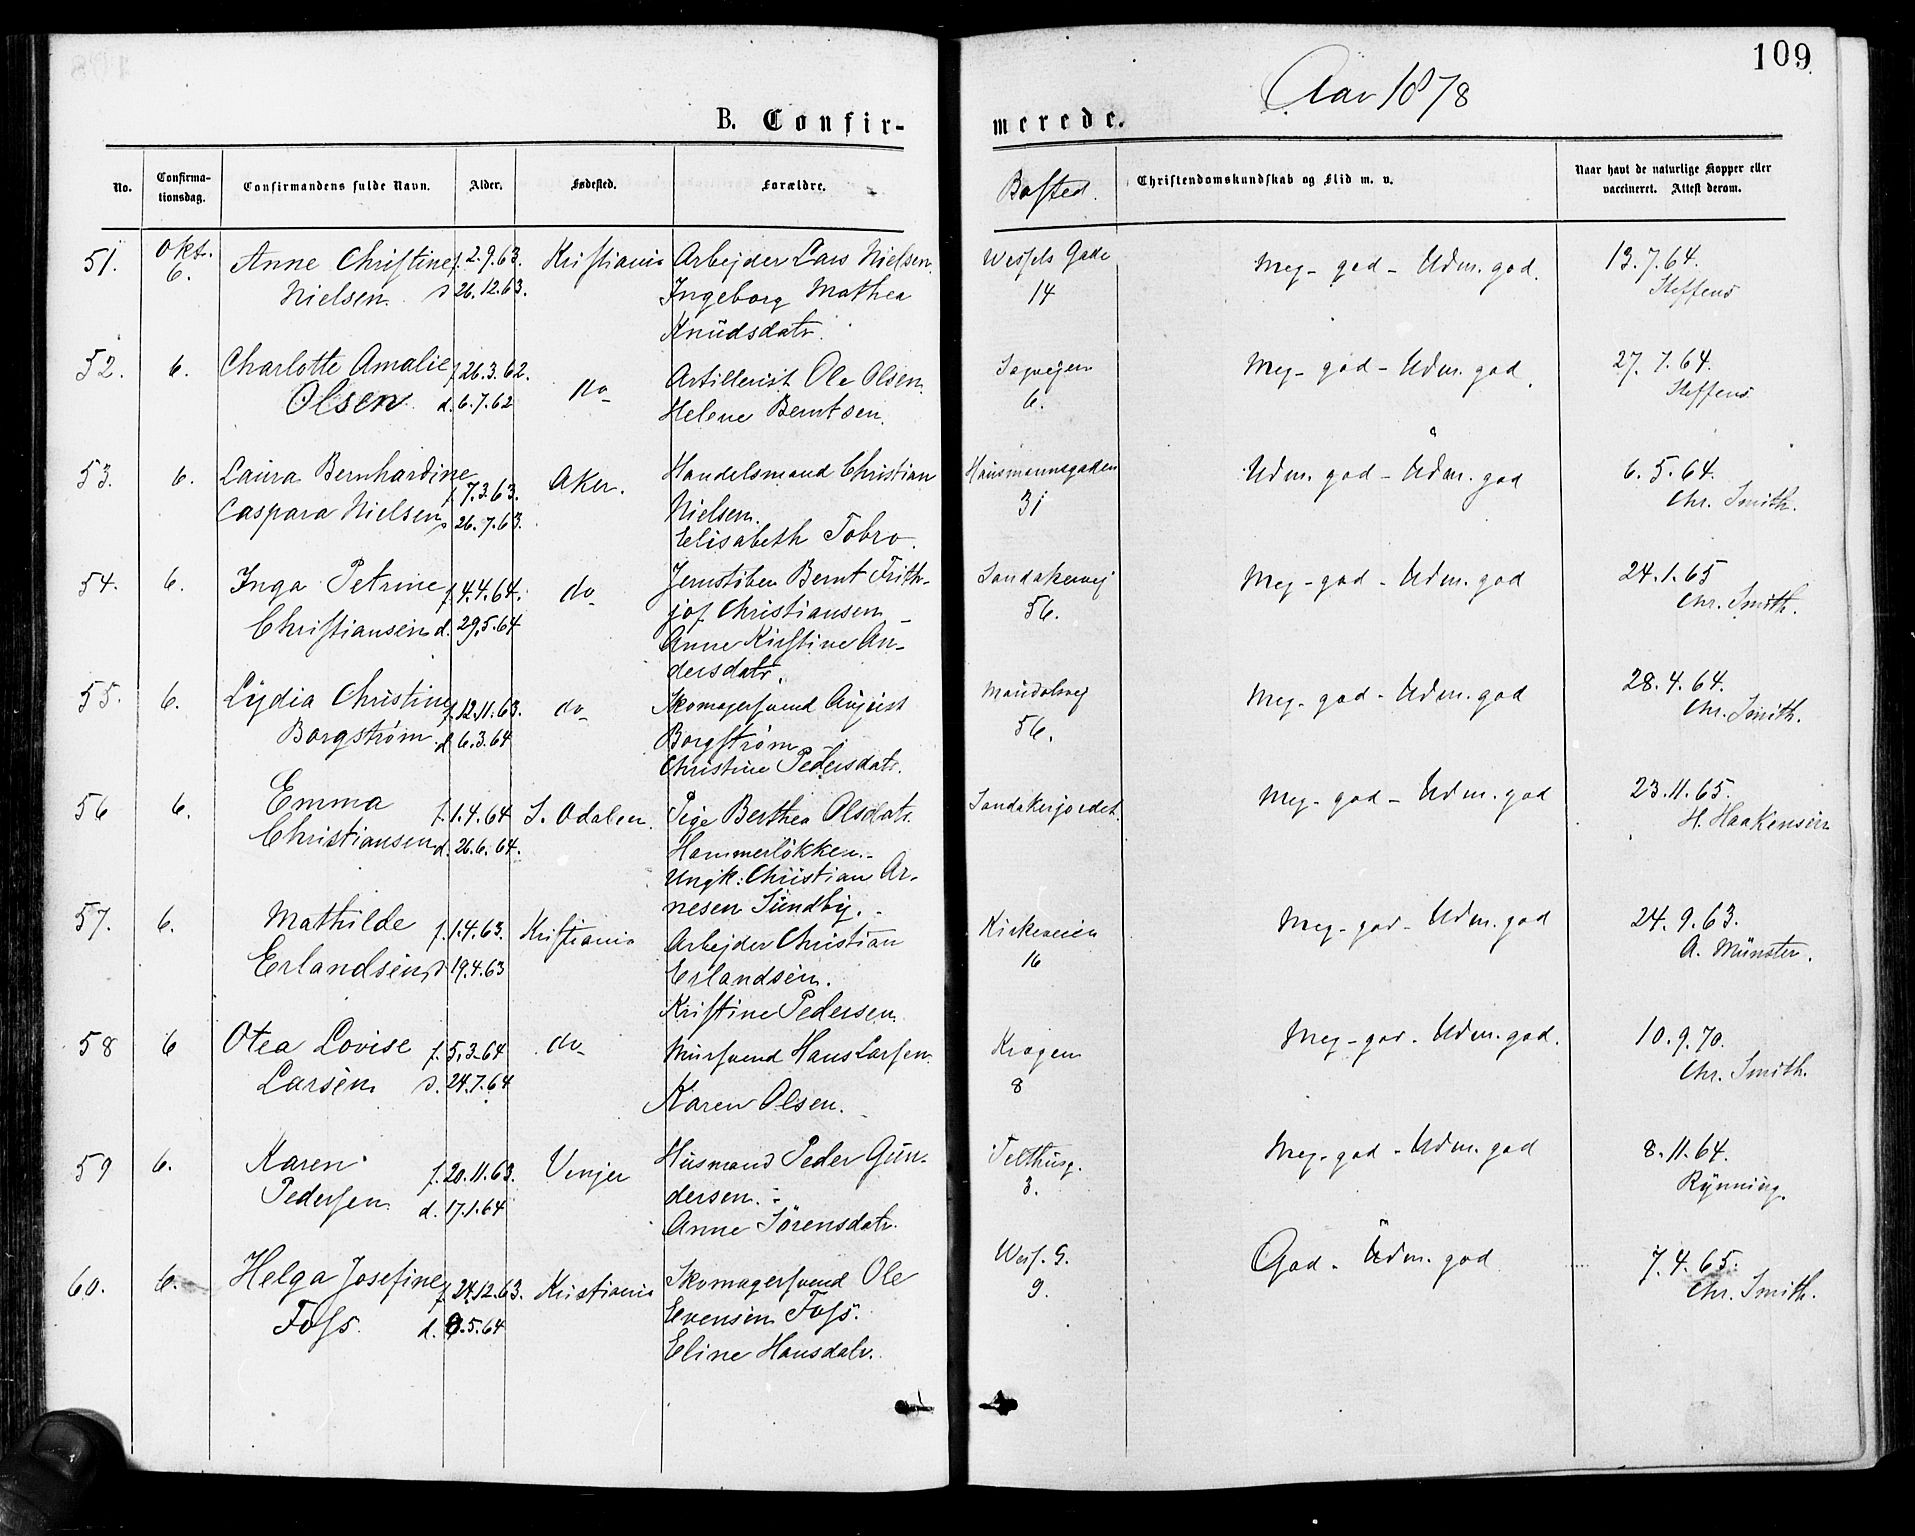 109
Aar 1878
B. Confir-
merede.
No.
Confirma-
tionsdag.
Confirmandens fulde Navn.
Alder.
Fødested.
Forældre.
Bosted.
Christendomskundskab og Flid m. v.
Naar havt de naturlige Kopper eller
vaccineret. Attest derom.
51. Okt. 6. Anne Christine f. 2.9.63. Kristiania Arbejder Lars Nielsen. Wessels Gade Meg. god - Udm. god. 13.7.64.
Nielsen d 26.12.63. Ingeborg Mathea 14 Steffens
Knudsdatr.
52. 6. Charlotte Amalie f. 26.3.62. do Artillerist Ole Olsen. Sagvejen Meg. god - Udm. god. 27.7.64.
Olsen d. 6.7.62 Helene Berntsen. 6. Steffens
53. 6. Laura Bernhardine f. 7.3.63. Aker. Handelsmand Christian Hausmannsgaden Udm. god - Udm. god 6.5.64.
Caspara Nielsen d 26.7.63. Nielsen. 31 Chr. Smith.
Elisabeth Tobro.
54. 6. Inga Petrine f. 4.4.64. do Jernstøber Bernt Frith- Sandakervej Meg. god - Udm. god 24.1.65
Christiansen d. 29.5.64 jof Christiansen 56. Chr. Smith.
Anne Kirstine An-
dersdatr.
55. 6. Lydia Christine f. 12.11.63. do Skomagersvend August Maridalsvej Meg. god - Udm. god 28.4.64.
Borgstrøm d. 6.3.64 Borgstrøm 56. Chr. Smith.
Christine Pedersdatr.
56 6. Emma f. 1.4.64 S. Odalen. Pige Berthea Olsdatr. Sandakerjordet. Meg. god - Udm. god 23.11.65.
Christiansen d. 26.6.64. Hammerløkken. H. Haakensen
Ungk: Christian Ar-
nesen Sundby.
57. 6. Mathilde f. 1.4.63. Kristiania Arbejder Christian Kirkeveien Meg. god - Udm. god 24.9.63.
Erlandsen d 19.4.63 Erlandsen. 16 A. Münster.
Kristine Pedersen.
58 6 Otea Lovise f. 5.3.64 do Mursvend Hans Larsen. Kragen Meg. god - Udm. god. 10.9.70.
Larsen d. 24.7.64 Karen Olsen. 8 Chr. Smith.
59 6. Karen f. 20.11.63. Vinger Husmand Peder Gun- Telthusg. Meg. god - Udm. god 8.11.64.
Pedersen d. 17.1.64 dersen. 3. Rynning.
Anne Sørensdatr.
60. 6. Helga Josefine f. 24.12.63. Kristiania Skomagersvend Ole Wess. G. God - Udm. god 7.4.65.
Foss. d. 8.5.64 Evensen Foss. 9. Chr. Smith.
Eline Hansdatr.